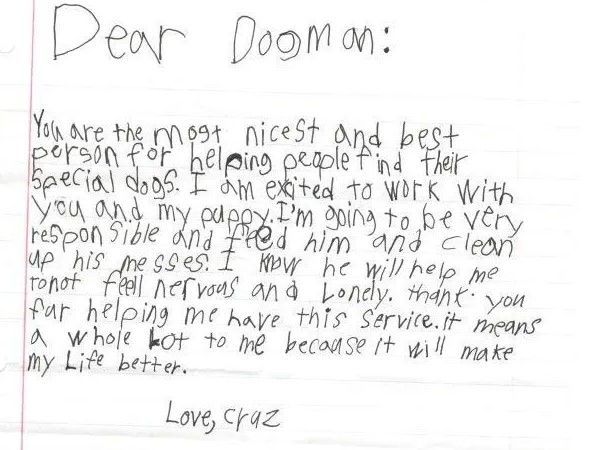 Dear Dogman:
You are the most nicest and best
person for helping people find their
special dogs. I am exited to work with
you and my puppy. I'm going to be very
responsible and feed him and clean
up his messes. I know he will help me
to not fell nervous and lonely. thank you
fur helping me have this service. it means
a whole Lot to me because it will make
my Life better.
Love, Cruz